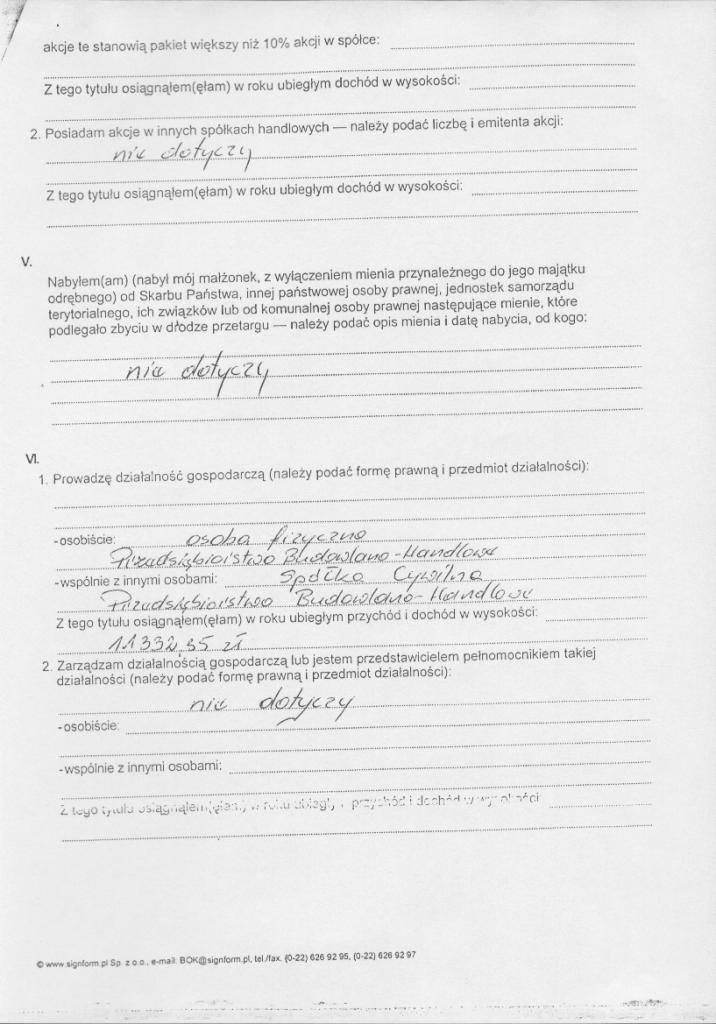 akcje te stanowią pakiet większy niż 10% akcji w spółce:
Z tego tytułu osiągnąłem(ęłam) w roku ubiegłym dochód w wysokości:
2. Posiadam akcje w innych spółkach handlowych — należy podać liczbę i emitenta akcji:
nie dotyczy
Z tego tytułu osiągnąłem(ęłam) w roku ubiegłym dochód w wysokości:
V.
Nabyłem(am) (nabył mój małżonek, z wyłączeniem mienia przynależnego do jego majątku
odrębnego) od Skarbu Państwa, innej państwowej osoby prawnej, jednostek samorządu
terytorialnego, ich związków lub od komunalnej osoby prawnej następujące mienie, które
podlegało zbyciu w drodze przetargu — należy podać opis mienia i datę nabycia, od kogo:
nie dotyczy
VI.
1. Prowadzę działalność gospodarczą (należy podać formę prawną i przedmiot działalności):
-osobiście: osoba fizyczna
Przedsiębiorstwo Budowlano-Handlowe
-wspólnie z innymi osobami: Spółka Cywilna
Przedsiębiorstwo Budowlano-Handlowe
Z tego tytułu osiągnąłem(ęłam) w roku ubiegłym przychód i dochód w wysokości:
11332,35 zł
2. Zarządzam działalnością gospodarczą lub jestem przedstawicielem pełnomocnikiem takiej
działalności (należy podać formę prawną i przedmiot działalności):
nie dotyczy
-osobiście:
-wspólnie z innymi osobami:
Z tego tytułu osiągnąłem(ęłam) w roku ubiegłym przychód i dochód w wysokości:
© www.signform.pl Sp. z o.o., e-mail: BOK@signform.pl, tel./fax. (0-22) 626 92 95, (0-22) 626 92 97